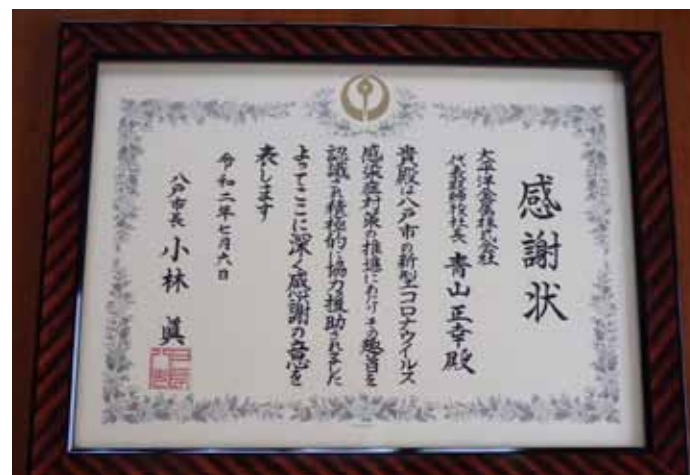 感謝状
大平洋金属株式会社
代表取締役社長 青山正幸殿
貴殿は八戸市の新型コロナウイルス
感染症対策の推進にあたりその趣旨を
認識され積極的に協力援助されました
よってここに深く感謝の意を
表します
令和二年七月六日
八戸市長 小林眞